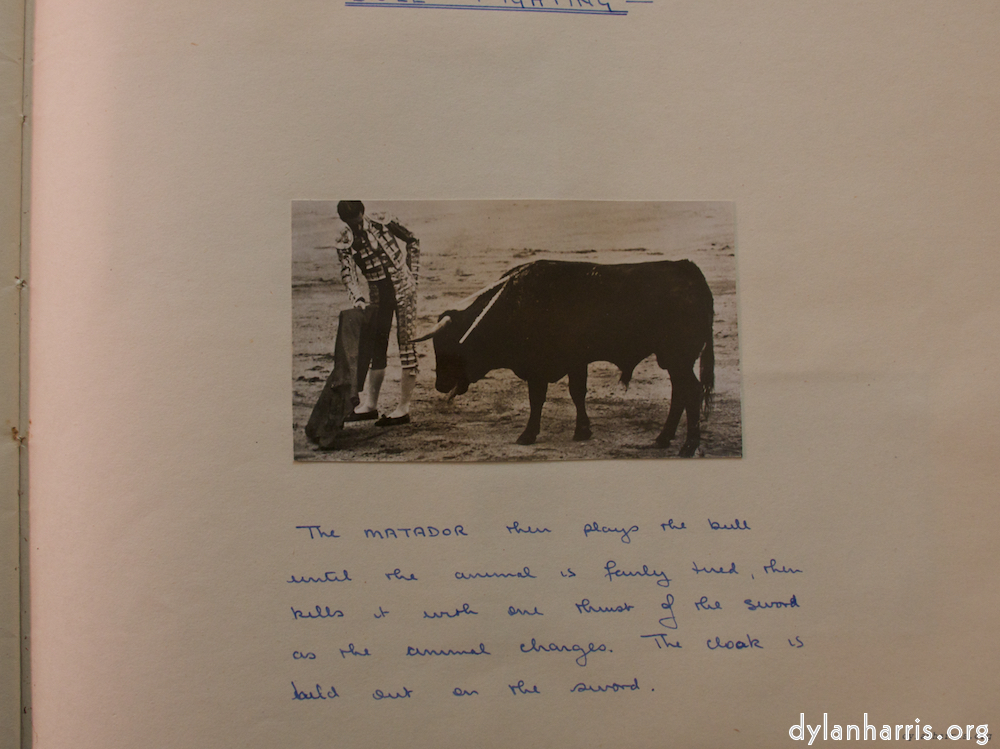 BULL FIGHTING —
The MATADOR then plays the bull
until the animal is fairly tired, then
kills it with one thrust of the sword
as the animal charges. The cloak is
held out on the sword.
dylanharris.org